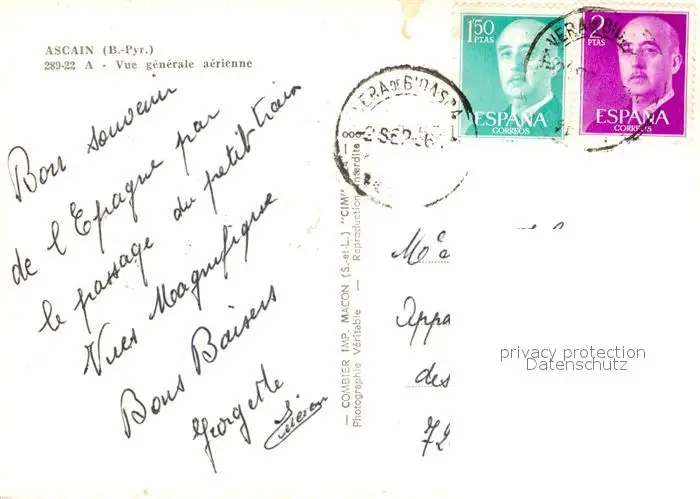 ASCAIN (B.-Pyr.)
289-22 A - Vue générale aérienne
1'50 PTAS
ESPAÑA
CORREOS
2 PTAS
ESPAÑA
CORREOS
VERA DE BIDASOA
2 SEP
VERA DE BID
Bon souvenir
de l'Espagne par
le passage du petit train
Vues Magnifique
Bons Baisers
Georgette
Lucien
— COMBIER IMP. MACON (S.-et-L.) "CIM"
Photographie Véritable — Reproduction Interdite
Appa
des
72
privacy protection
Datenschutz